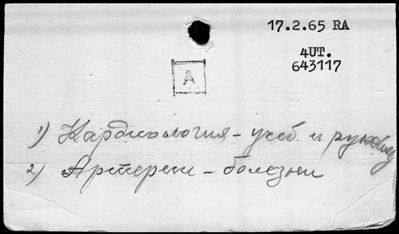 17.2.65 RA
4UT.
643117
A
1) Кардиология - учеб. и руков.
2) Артерии - болезни